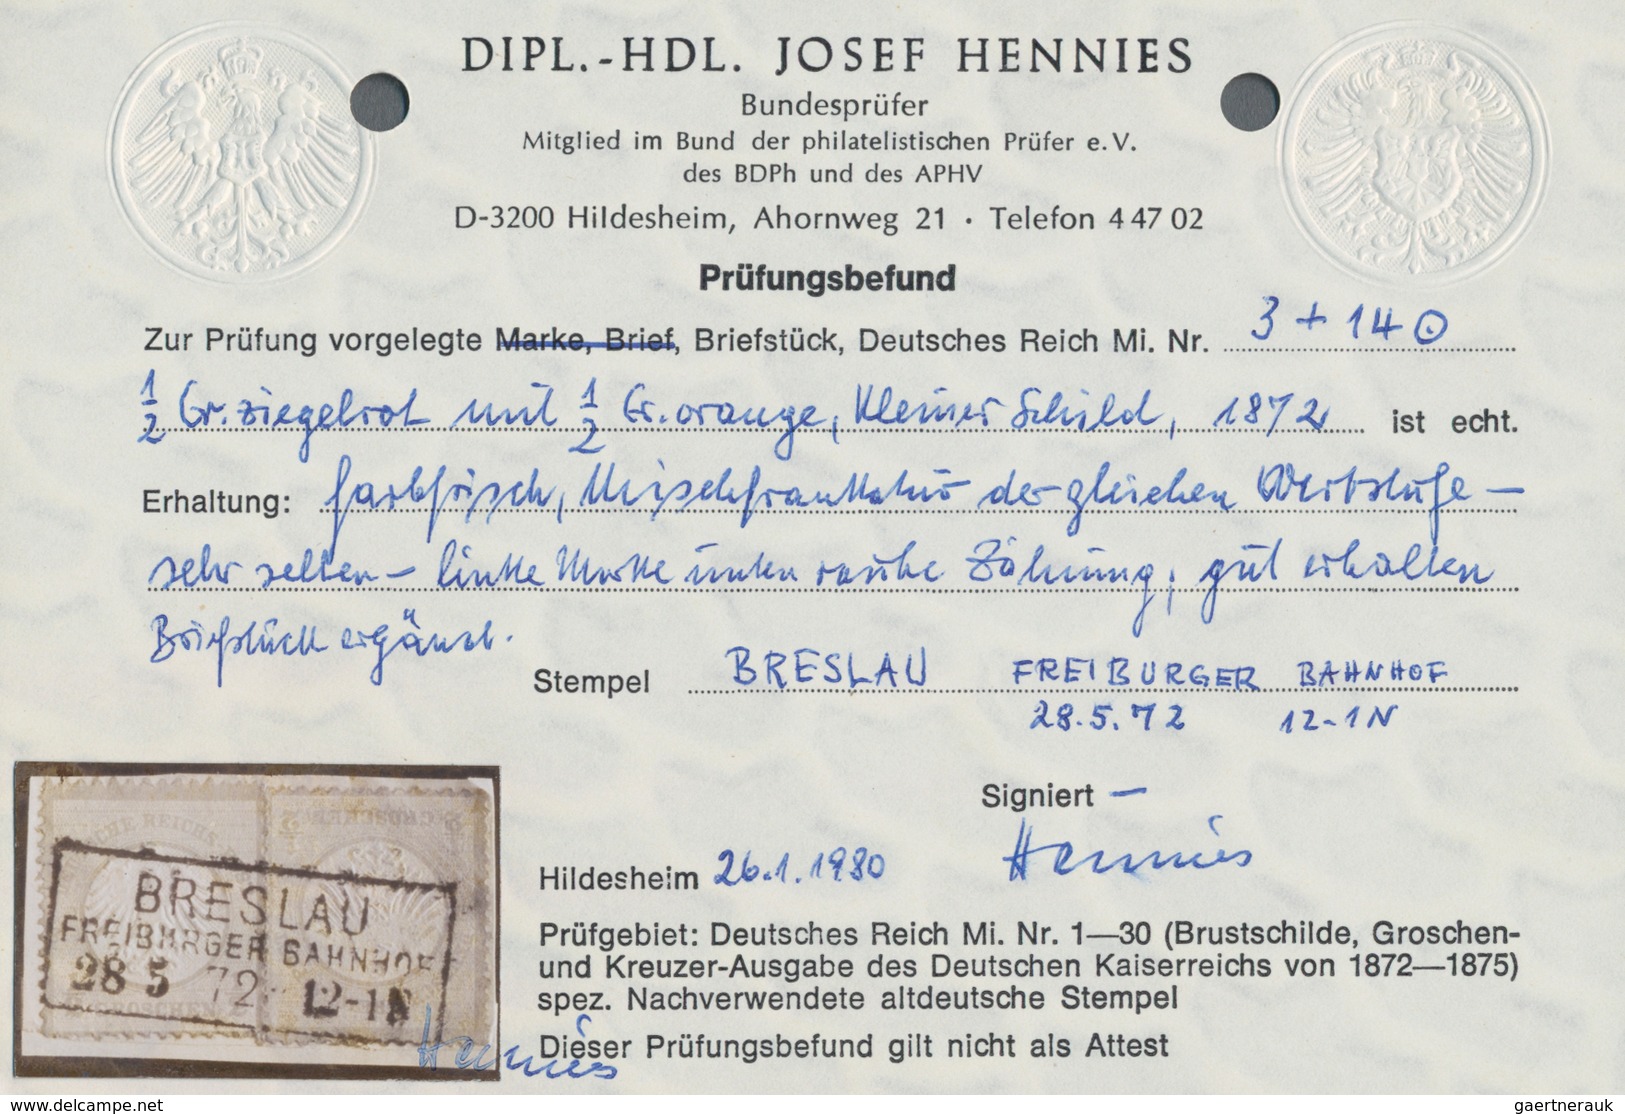 DIPL.-HDL. JOSEF HENNIES
Bundesprüfer
Mitglied im Bund der philatelistischen Prüfer e.V.
des BDPh und des APHV
D-3200 Hildesheim, Ahornweg 21 · Telefon 4 47 02
Prüfungsbefund
Zur Prüfung vorgelegte Marke, Brief, Briefstück, Deutsches Reich Mi. Nr. 3 + 14 ⊙
1/2 Gr. ziegelrot mit 1/2 Gr. orange, kleiner Schild, 1872 ist echt.
Erhaltung: farbfrisch, Mischfrankatur der gleichen Wertstufe –
sehr selten – linke Marke unten rauhe Zähnung, gut erhalten
Briefstück ergänzt.
Stempel BRESLAU FREIBURGER BAHNHOF
28.5.72 12-1N
Signiert –
Hennies
Hildesheim 26.1.1980
Prüfgebiet: Deutsches Reich Mi. Nr. 1—30 (Brustschilde, Groschen-
und Kreuzer-Ausgabe des Deutschen Kaiserreichs von 1872—1875)
spez. Nachverwendete altdeutsche Stempel
Dieser Prüfungsbefund gilt nicht als Attest
CHE REICHS
1/2 GROSCHEN 1/2
BRESLAU
FREIBURGER BAHNHOF
28 5 72 12-1N
GROSCHEN
Hennies
www.delcampe.net
gaertnerauk